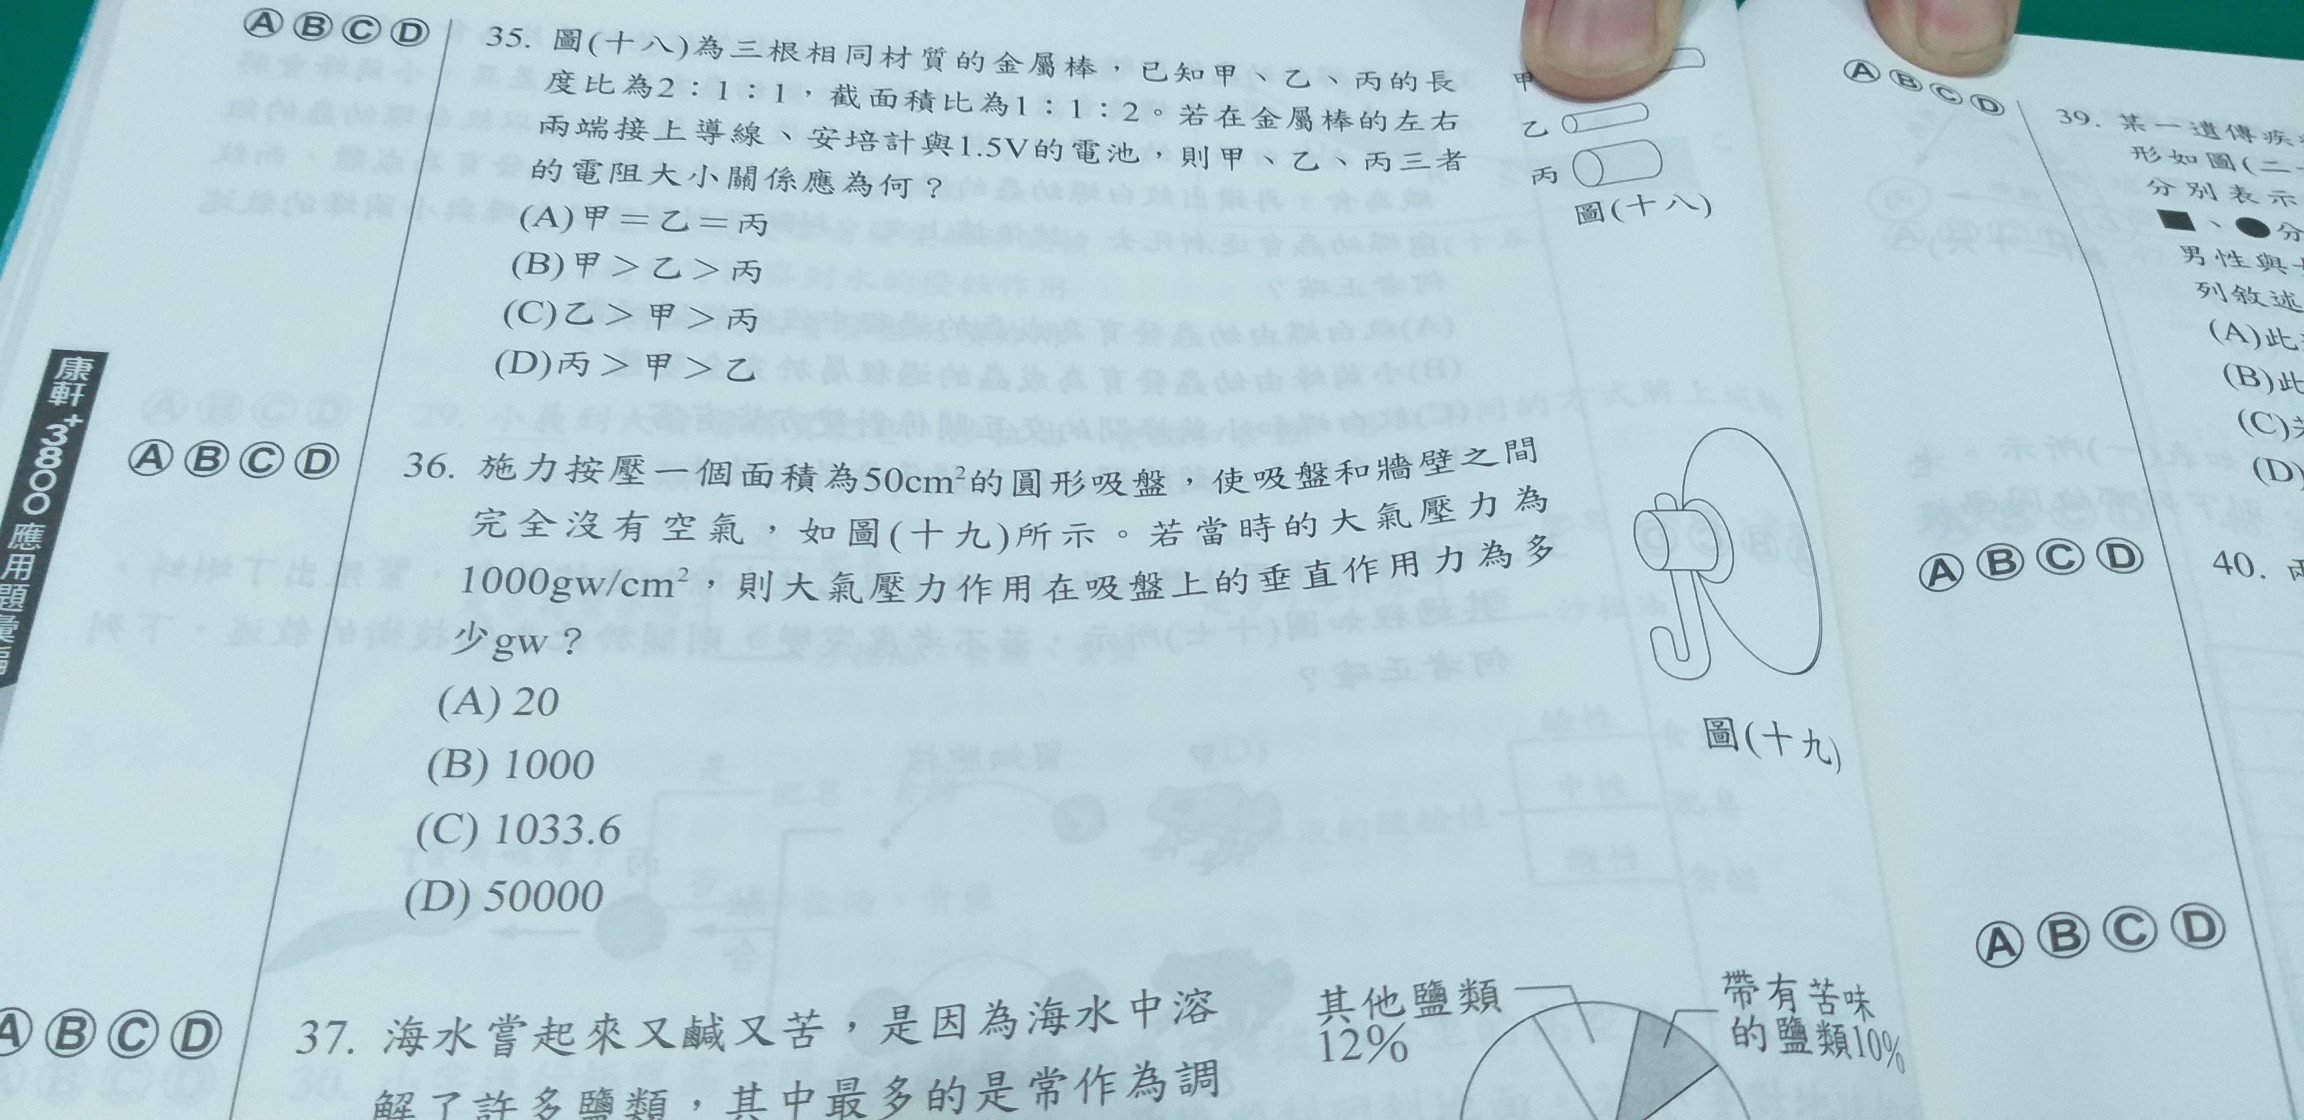 康軒+3800應用題彙編
ⒶⒷⒸⒹ
35. 圖(十八)為三根相同材質的金屬棒，已知甲、乙、丙的長
度比為2：1：1，截面積比為1：1：2。若在金屬棒的左右
兩端接上導線、安培計與1.5V的電池，則甲、乙、丙三者
的電阻大小關係應為何？
(A)甲＝乙＝丙
(B)甲＞乙＞丙
(C)乙＞甲＞丙
(D)丙＞甲＞乙
甲
乙
丙
圖(十八)
ⒶⒷⒸⒹ
36. 施力按壓一個面積為50cm²的圓形吸盤，使吸盤和牆壁之間
完全沒有空氣，如圖(十九)所示。若當時的大氣壓力為
1000gw/cm²，則大氣壓力作用在吸盤上的垂直作用力為多
少gw？
(A) 20
(B) 1000
(C) 1033.6
(D) 50000
圖(十九)
ⒶⒷⒸⒹ
37. 海水嘗起來又鹹又苦，是因為海水中溶
解了許多鹽類，其中最多的是常作為調
其他鹽類
12%
帶有苦味
的鹽類10%
ⒶⒷⒸⒹ
39. 某一遺傳疾
形如圖(二
分別表示
■、●分
男性與
列敘述
(A)此
(B)此
(C)
(D)
ⒶⒷⒸⒹ
40.
ⒶⒷⒸⒹ